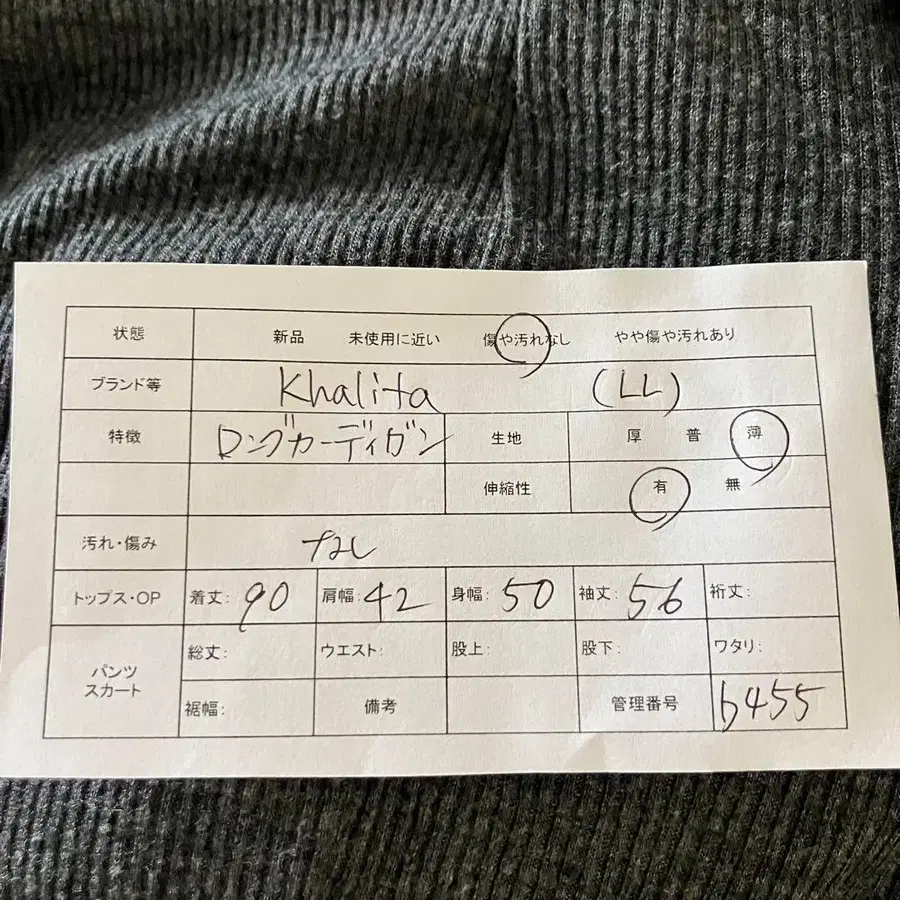 状態 新品 未使用に近い 傷や汚れなし やや傷や汚れあり
ブランド等 Khalita (LL)
特徴 ロングカーディガン 生地 厚 普 薄
伸縮性 有 無
汚れ・傷み なし
トップス・OP 着丈: 90 肩幅: 42 身幅: 50 袖丈: 56 裄丈:
パンツ スカート 総丈: ウエスト: 股上: 股下: ワタリ:
裾幅: 備考 管理番号 b455